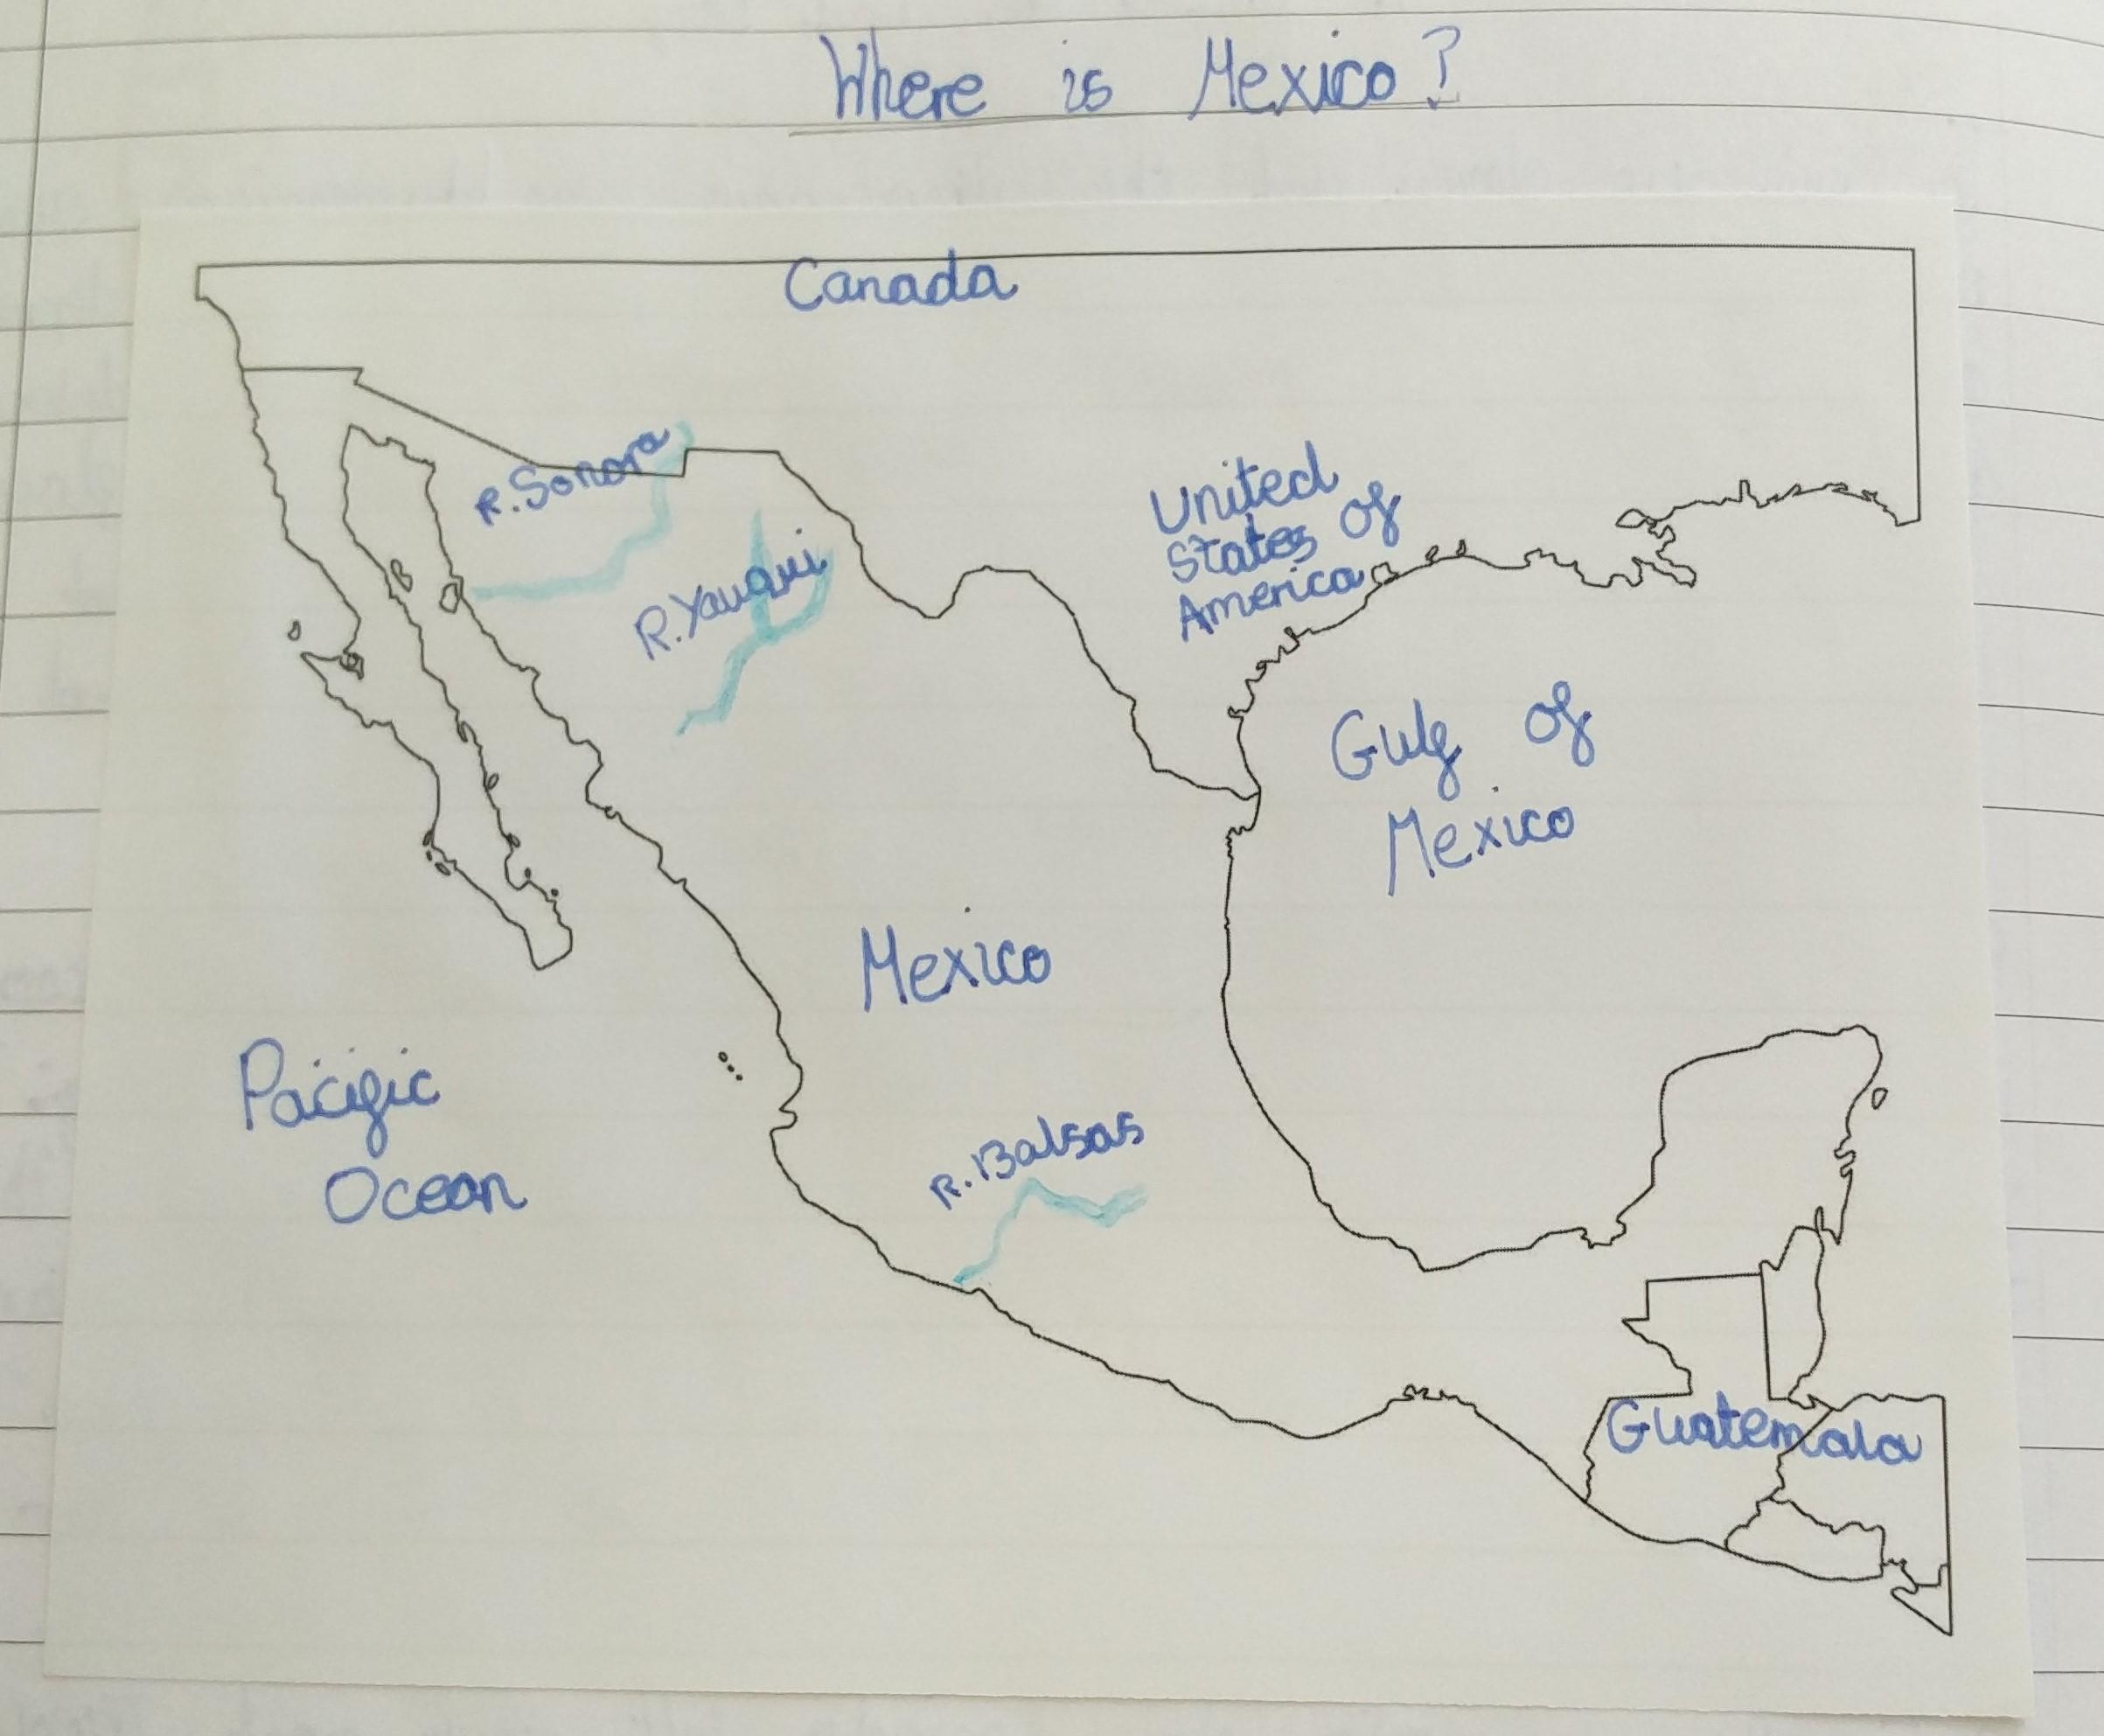 Where is Mexico?
Canada
R. Sonora
United
States of
America
R. Yauqui
Gulf of
Mexico
Mexico
Pacific
Ocean
R. Balsas
Guatemala